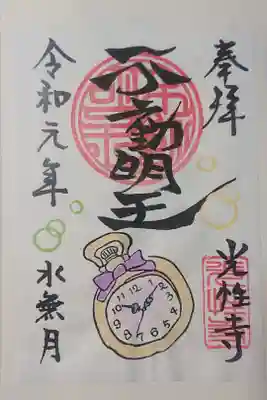 奉拝
不動明王
光性寺
令和元年
水無月
12 1 2 3 4 5 6 7 8 9 10 11